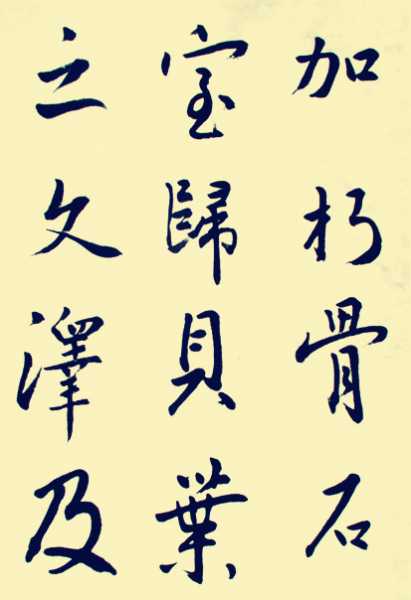 加朽骨石
室歸貝葉
之文澤及